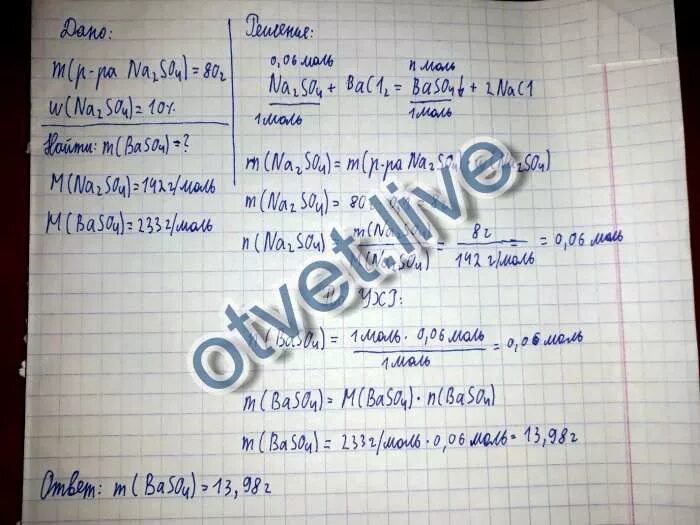 Дано:
m(р-ра Na₂SO₄)=80г
w(Na₂SO₄)=10%
Найти: m(BaSO₄)=?
M(Na₂SO₄)=142г/моль
M(BaSO₄)=233г/моль
Решение:
0,06 моль n моль
Na₂SO₄ + BaCl₂ = BaSO₄↓ + 2NaCl
1 моль 1 моль
m(Na₂SO₄)=m(р-ра Na₂SO₄) Na₂SO₄)
m(Na₂SO₄)= 80
n(Na₂SO₄) = m(Na₂SO₄) / M(Na₂SO₄) = 8г / 142 г/моль = 0,06 моль
УХР:
n(BaSO₄) = 1 моль · 0,06 моль / 1 моль = 0,06 моль
m(BaSO₄) = M(BaSO₄)·n(BaSO₄)
m(BaSO₄) = 233г/моль·0,06 моль=13,98г
Ответ: m(BaSO₄)=13,98г
otvet.live